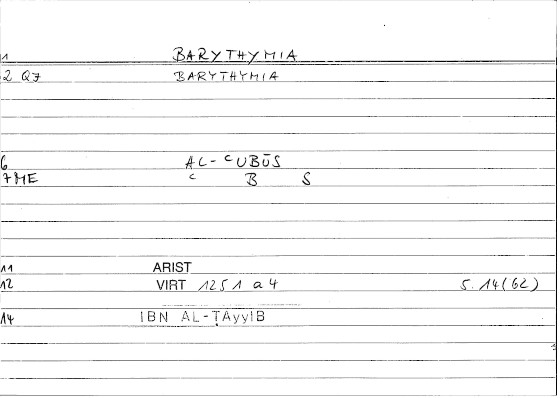 1 BARYTHYMIA
2 Q7 BARYTHYMIA
6 AL-ʿUBŪS
7ME ʿ B S
11 ARIST
12 VIRT 1251 a 4 5.14(62)
14 IBN AL-ṬAyyIB